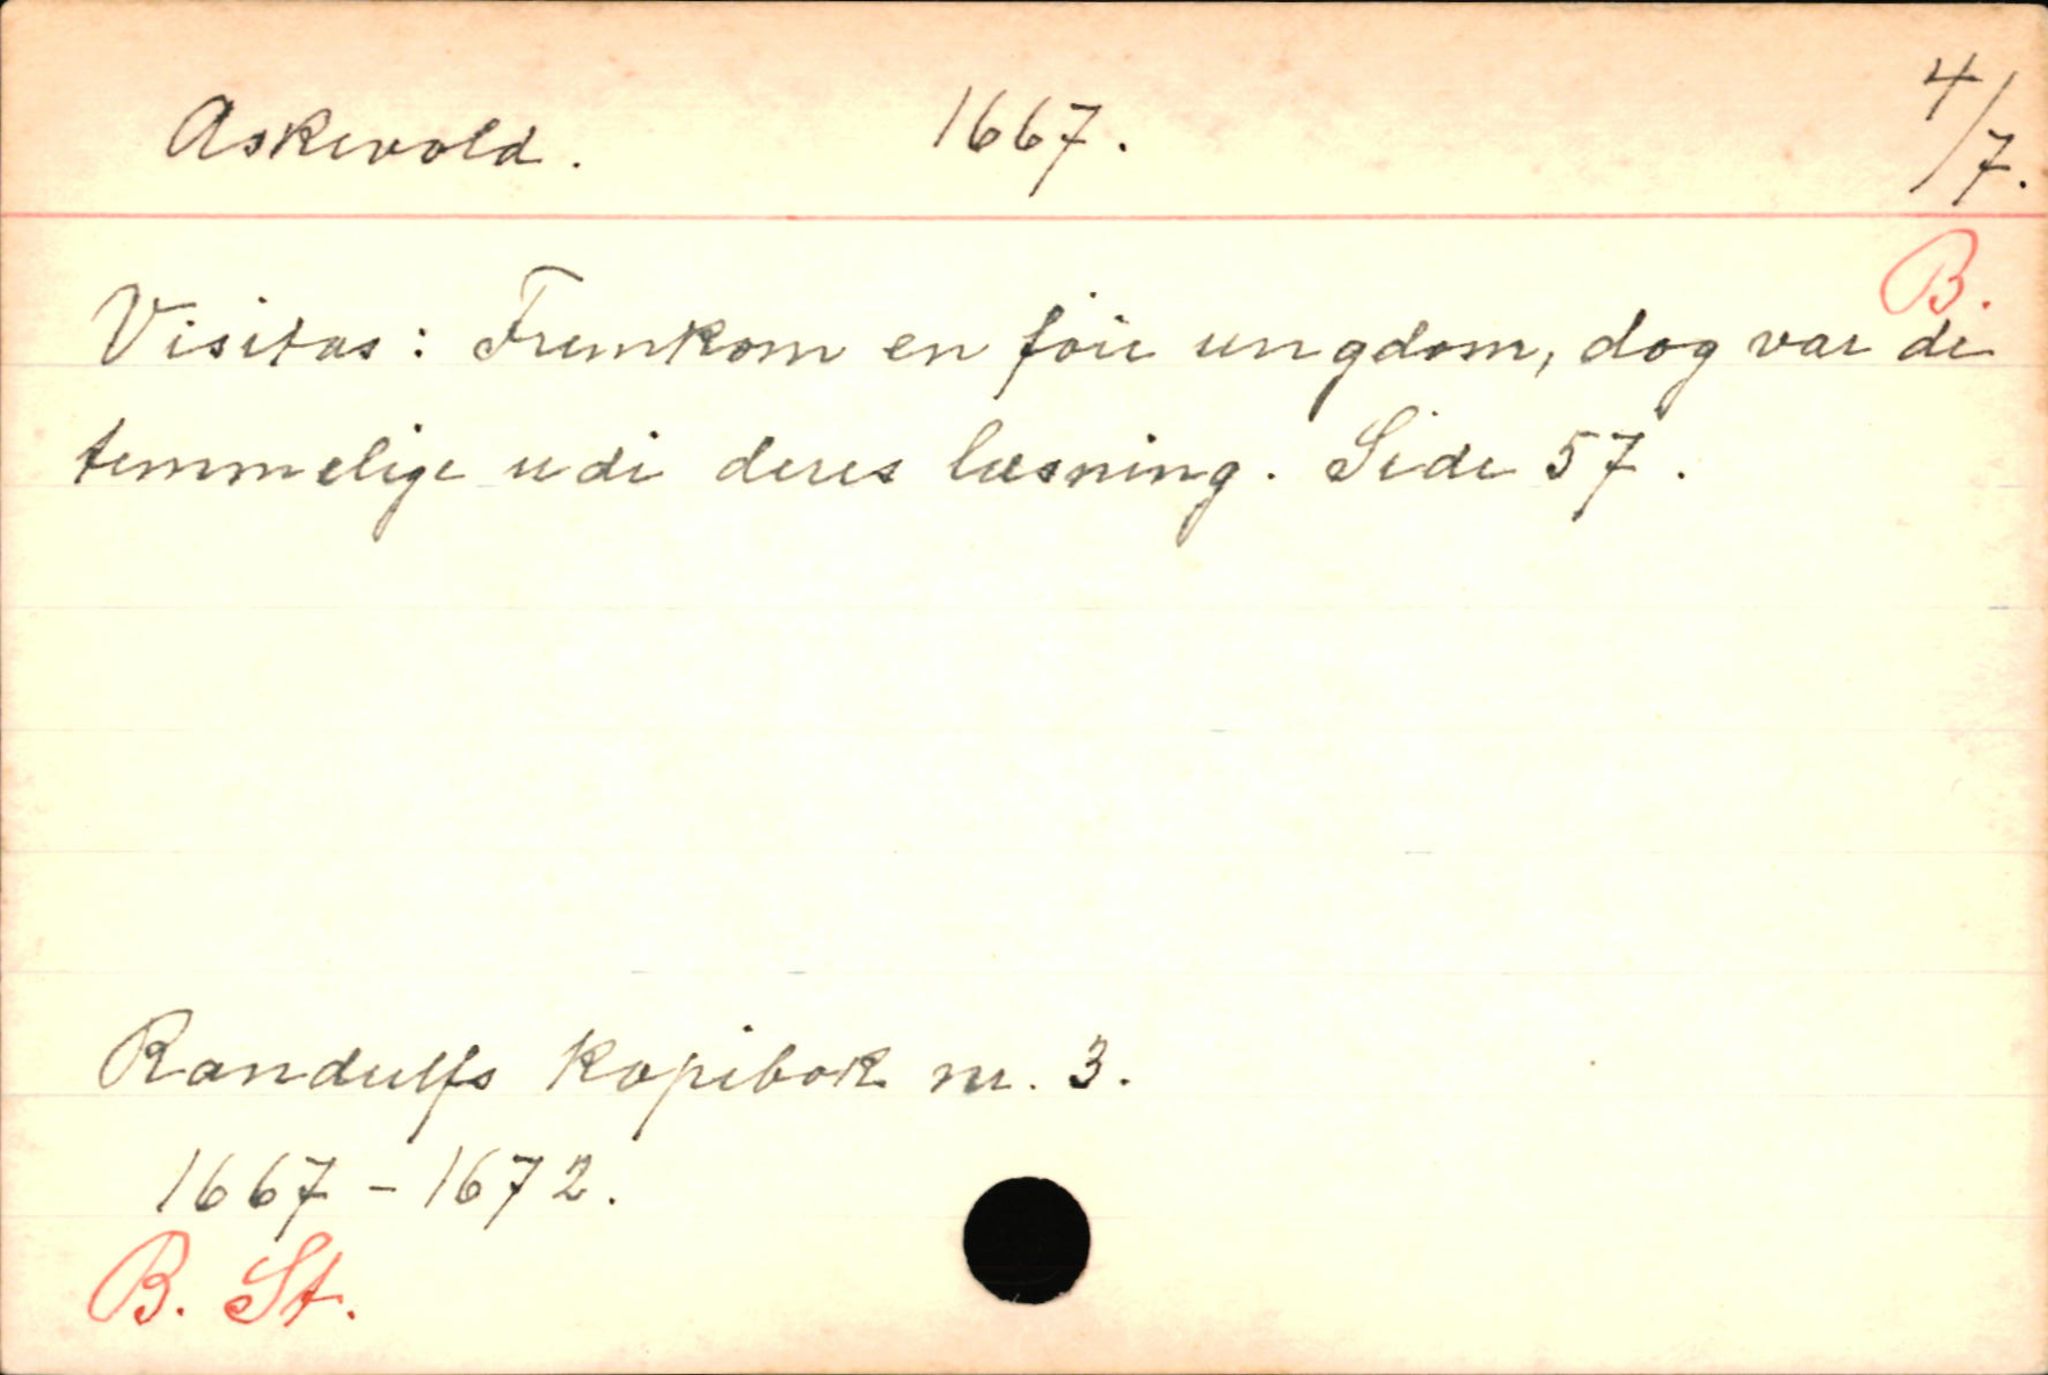 Askevold. 1667. 4/7.
B.
Visitas: Fremkom en föie ungdom, dog var de
temmelige udi deres læsning. Side 57.
Randulfs kopibok nr. 3.
1667-1672.
B. St.